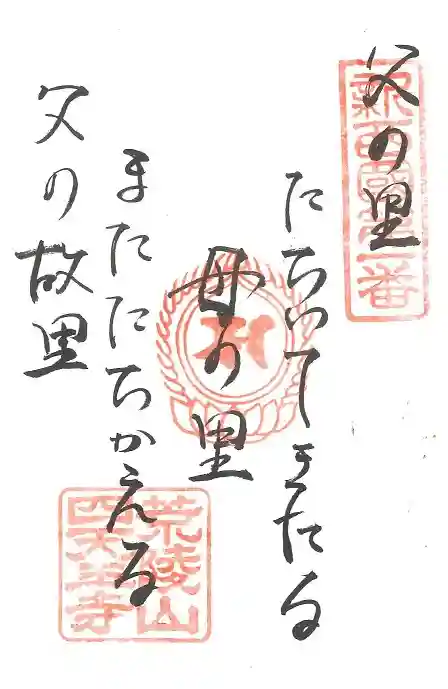 父の里
たちいてきたる
母の里
またたちかえる
父の故里
新西国第一番
荒陵山
四天王寺